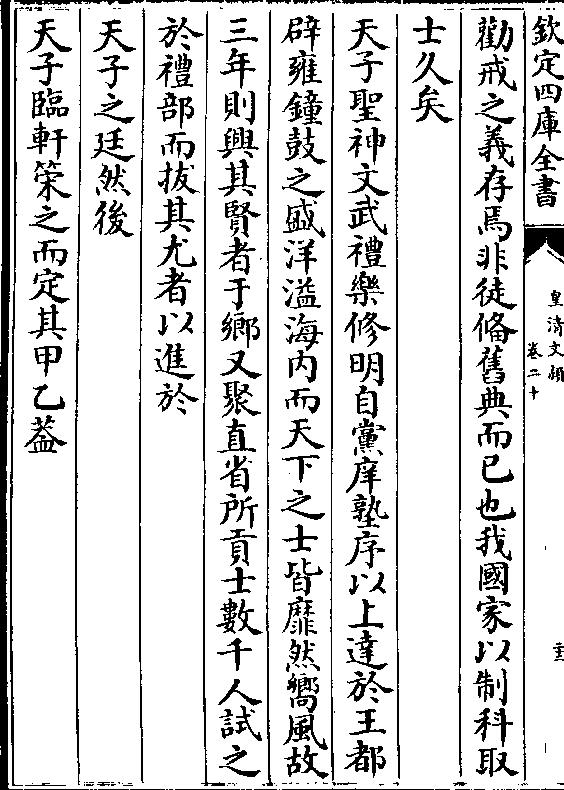 欽定四庫全書
皇清文穎
卷二十
勸戒之義存焉非徒偹舊典而已也我國家以制科取
士久矣
天子聖神文武禮樂修明自黨庠塾序以上達於王都
辟雍鐘鼓之盛洋溢海内而天下之士皆靡然嚮風故
三年則興其賢者于鄉又聚直省所貢士數千人試之
於禮部而拔其尤者以進於
天子之廷然後
天子臨軒策之而定其甲乙葢